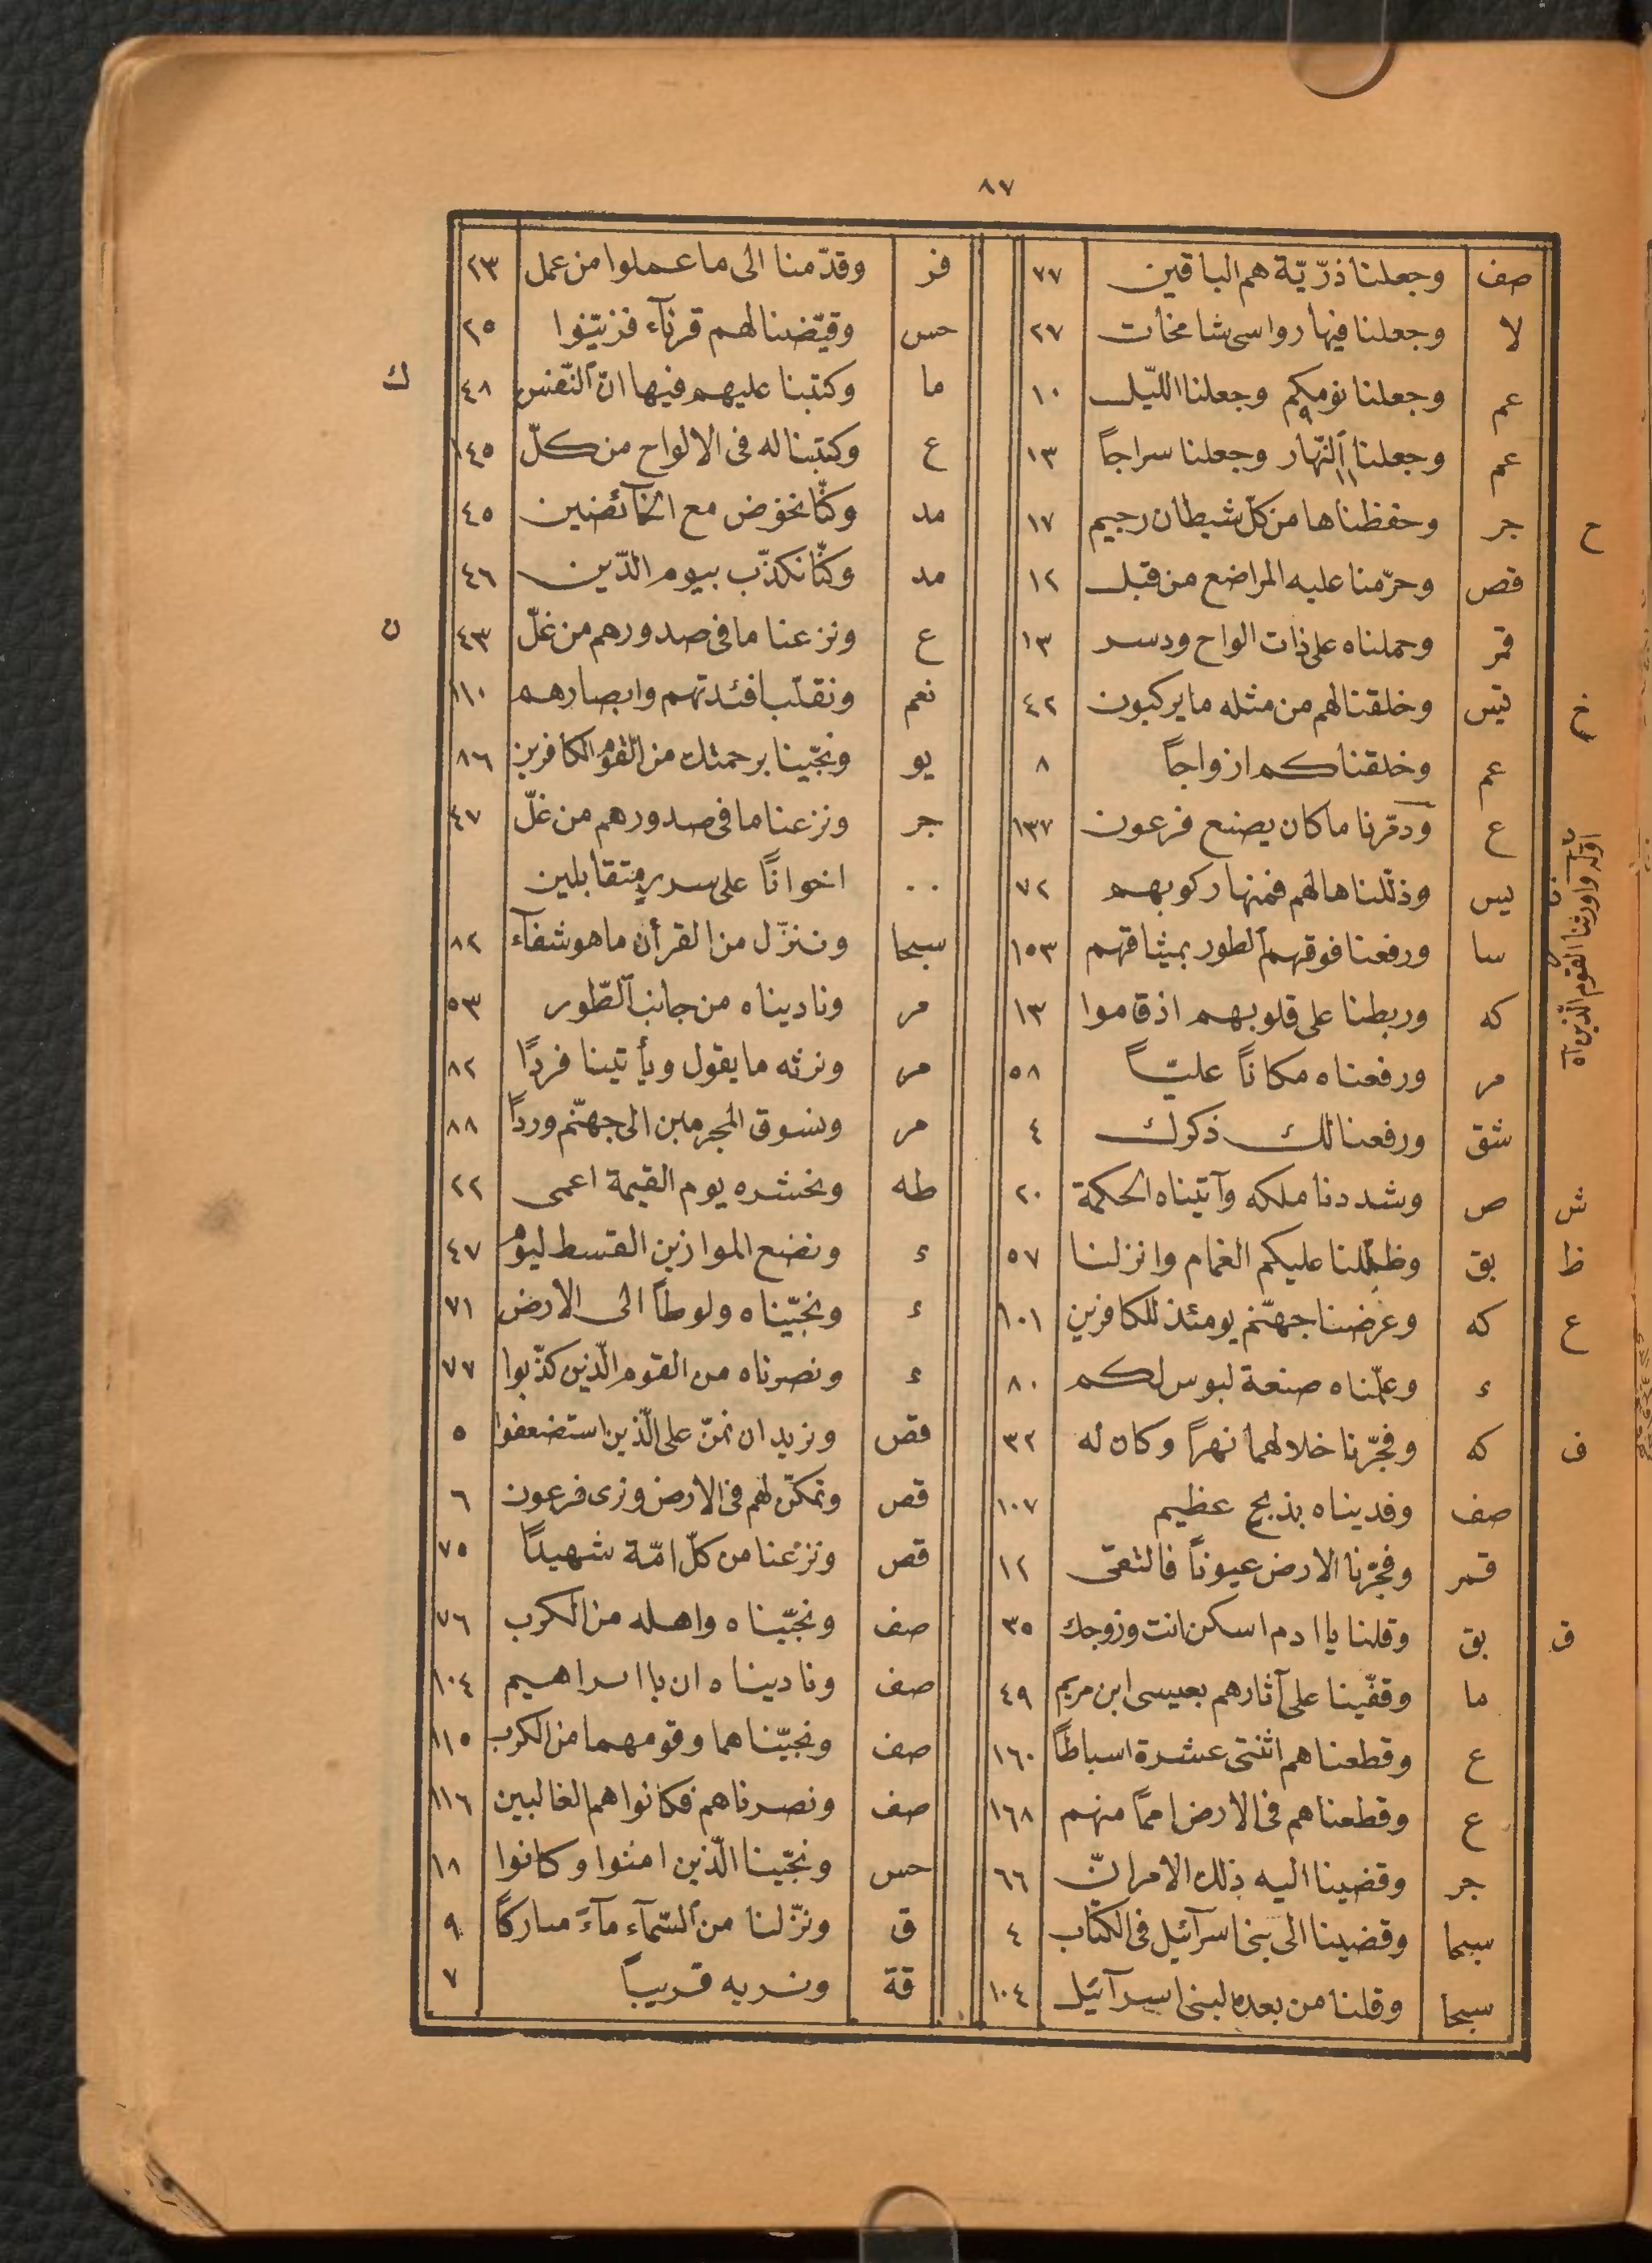 ٨٧
صف وجعلنا ذرّيّة هم الباقين ٧٧
لا وجعلنا فيها رواسى شامخات ٢٧
عم وجعلنا نومكم ٩ وجعلنا اللّيل ١٠
عم وجعلنا ١١ النّهار وجعلنا سراجاً ١٣
ح جر وحفظناها من كلّ شيطان رجيم ١٧
قص وحرّمنا عليه المراضع من قبل ١٢
قمر وحملناه على ذات الواح ودسر ١٣
خ يس وخلقنا لهم من مثله ما يركبون ٤٢
عم وخلقناكم ازواجاً ٨
ع ودمّرنا ما كان يصنع فرعون ١٣٧
اوّله واورثنا القوم الّذين آه
يس وذلّلناها لهم فمنها ركوبهم ٧٢
سا ورفعنا فوقهم الطور بميثاقهم ١٥٣
كه وربطنا على قلوبهم اذ قاموا ١٣
مر ورفعناه مكاناً عليّاً ٥٨
شق ورفعنا لك ذكرك ٤
ش ص وشددنا ملكه وآتيناه الحكمة ٢٠
ظ بق وظلّلنا عليكم الغمام وانزلنا ٥٧
ع كه وعرضنا جهنّم يومئذ للكافرين ١٠١
ء وعلّمناه صنعة لبوس لكم ٨٠
ف كه وفجّرنا خلالهما نهراً وكان له ٣٢
صف وفديناه بذبح عظيم ١٠٧
قمر وفجّرنا الارض عيوناً فالتقى ١٢
ق بق وقلنا يا ادم اسكن انت وزوجك ٣٥
ما وقفّينا على آثارهم بعيسى ابن مريم ٤٩
ع وقطعناهم اثنتى عشرة اسباطاً ١٦٠
ع وقطعناهم فى الارض امماً منهم ١٦٨
جر وقضينا اليه ذلك الامر انّ ٦٦
سبحا وقضينا الى بنى اسرآئيل فى الكتاب ٤
سبحا وقلنا من بعده لبنى اسرآئيل ١٠٤
فر وقدّمنا الى ما عملوا من عمل ٢٣
حس وقيّضنا لهم قرنآء فزيّنوا ٢٥
ك ما وكتبنا عليهم فيها انّ النّفس ٤٨
ع وكتبنا له فى الالواح من كلّ ١٤٥
مد وكنّا نخوض مع الخآئضين ٤٥
مد وكنّا نكذّب بيوم الدّين ٤٦
ن ع ونزعنا ما فى صدورهم من غلّ ٤٣
نعم ونقلّب افئدتهم وابصارهم ١١٠
يو ونجّينا برحمتك من القوم الكافرين ٨٦
جر ونزعنا ما فى صدورهم من غلّ ٤٧
٠٠ اخواناً على سرر متقابلين
سبحا وننزّل من القرأن ما هو شفآء ٨٢
مر وناديناه من جانب الطّور ٥٣
مر ونرثه ما يقول ويأتينا فرداً ٨٢
مر ونسوق المجرمين الى جهنّم ورداً ٨٨
طه ونحشره يوم القيمة اعمى ٢٢
ء ونضع الموازين القسط ليوم ٤٧
ء ونجّيناه ولوطاً الى الارض ٧١
ء ونصرناه من القوم الّذين كذّبوا ٧٧
قص ونريد ان نمنّ على الّذين استضعفوا ٥
قص ونمكّن لهم فى الارض ونرى فرعون ٦
قص ونزعنا من كلّ امّة شهيداً ٧٥
صف ونجّيناه واهله من الكرب ٧٦
صف وناديناه ان يا ابراهيم ١٠٤
صف ونجّيناهما وقومهما من الكرب ١١٥
صف ونصرناهم فكانوا هم الغالبين ١١٦
حس ونجّينا الّذين امنوا وكانوا ١٨
ق ونزّلنا من السّمآء مآءً مباركاً ٩
قة ونريه قريباً ٧